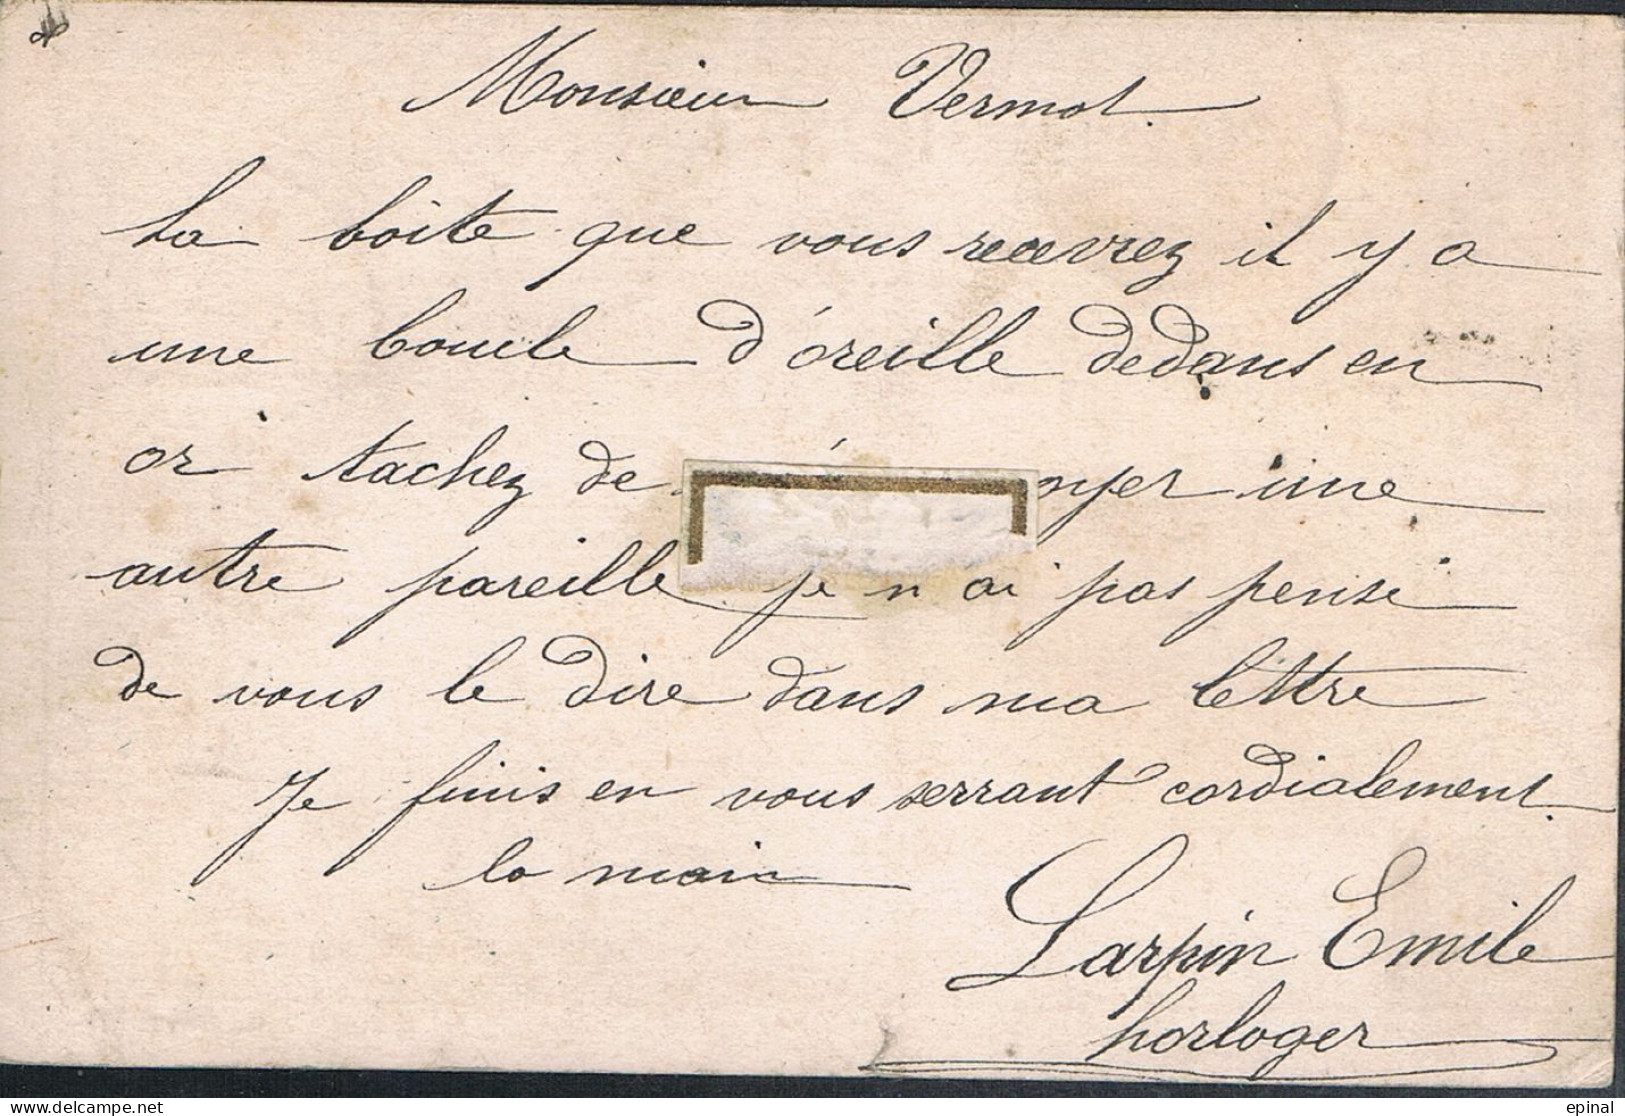 Monsieur Vermot.
La boite que vous recevrez il y a
une boucle d'oreille dedans en
or tachez de nyer une
autre pareille je n ai pas pensé
de vous le dire dans ma lettre
Je finis en vous serrant cordialement.
la main
Larpin Emile
horloger
epinal